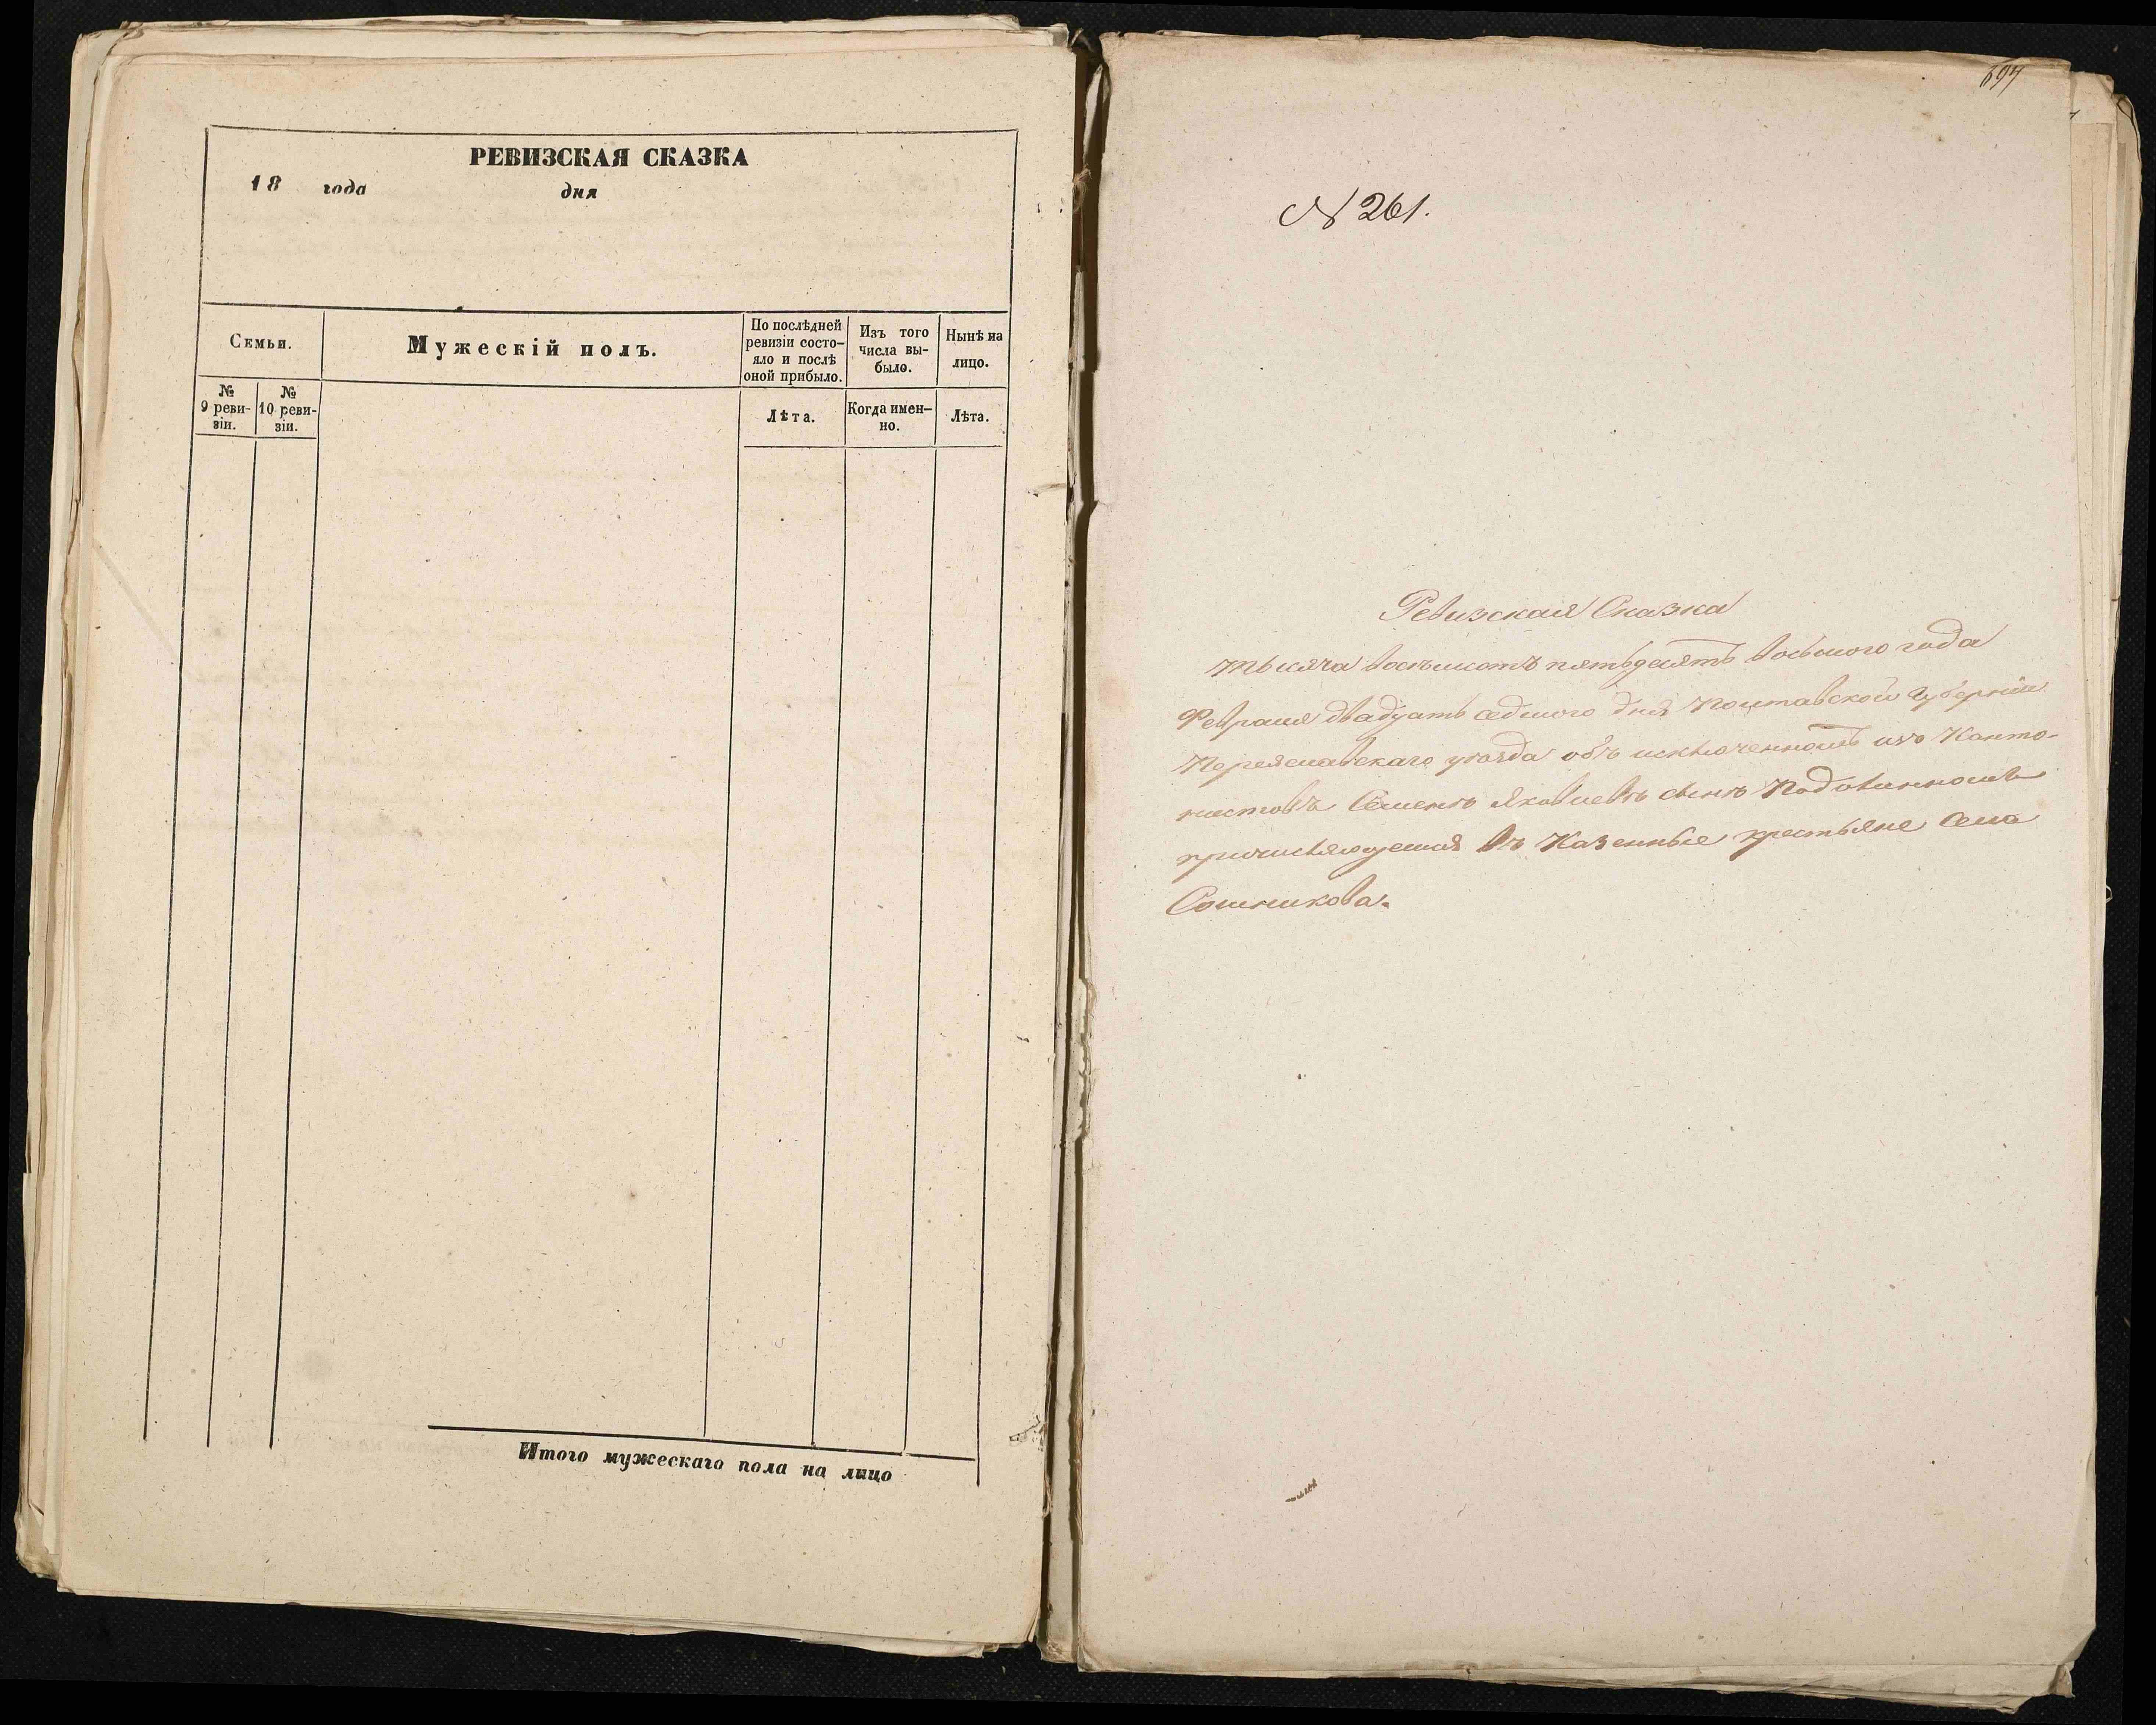 РЕВИЗСКАЯ СКАЗКА
18 года дня
Семьи.
Мужескій полъ.
По послѣдней
ревизіи состо-
яло и послѣ
оной прибыло.
Изъ того
числа вы-
было.
Нынѣ на
лицо.
№
9 реви-
зіи.
№
10 реви-
зіи.
Лѣта.
Когда имен-
но.
Лѣта.
Итого мужескаго пола на лицо
697
N 261.
Ревизская Сказка
тысяча восемьсотъ пятьдесятъ восьмого года
Февраля двадцать седмого дня Полтавской Губерніи
Переяславскаго уѣзда объ исключенномъ изъ Канто-
нистовъ Семенъ Яковлевъ сынъ
причисляющемся въ Казенные крестьяне Села
Сошникова.